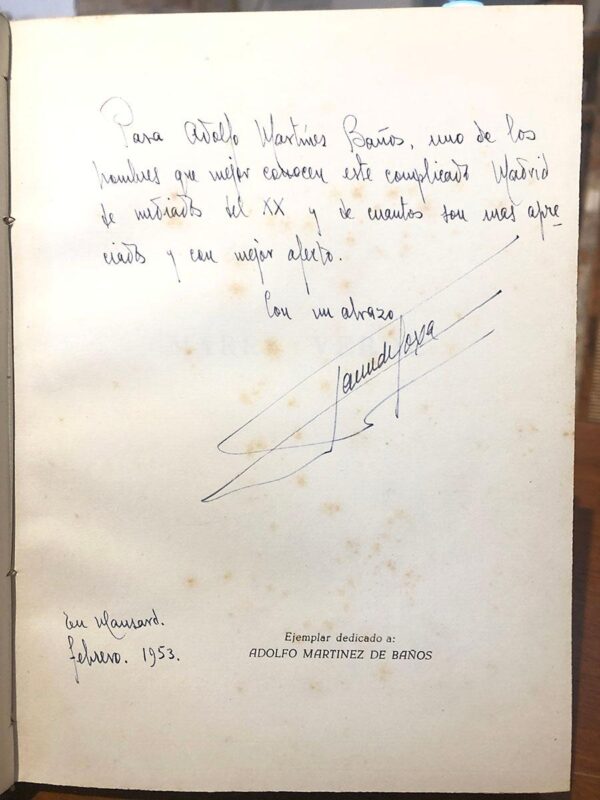 Para Adolfo Martínes Baños, uno de los
hombres que mejor conocen este complicado Madrid
de mediados del XX y de cuantos son mas apre-
ciados y con mejor afecto.
Con un abrazo
En Mansard.
febrero. 1953.
Ejemplar dedicado a:
ADOLFO MARTINEZ DE BAÑOS